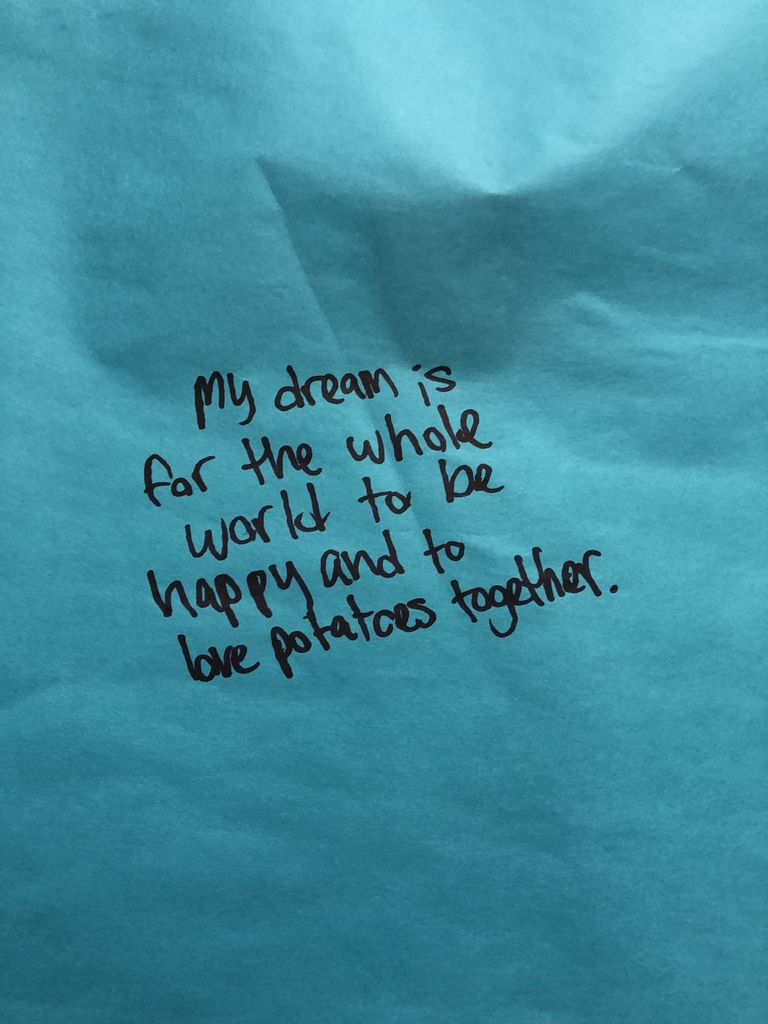 My dream is
for the whole
world to be
happy and to
love potatoes together.